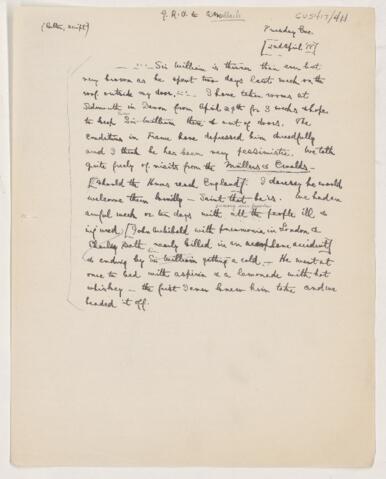 G.R.O. to
CUS417/4.11
(Letter, script)
Tuesday Eve.
[2nd April '18]
— . . . Sir William is thinner than ever but
very brown as he spent two days last week on the
roof outside my door. . . . I have taken rooms at
Sidmouth in Devon from April 29th for 3 weeks & hope
to keep Sir William there & out of doors. The
conditions in France have depressed him dreadfully
and I think he has been very pessimistic. We talk
quite freely of visits from the Müllers & Ewalds —
[should the Huns reach England]. I daresay he would
welcome them humbly — Saint that he is. We had an
awful week or ten days with all the people ill &
injured [John Archibald with pneumonia in London &
Charley nearly killed in an aeroplane accident]
& ending by Sir William getting a cold — He went at
once to bed with aspirin & a lemonade with hot
whiskey — the first I ever knew him take and we
headed it off.